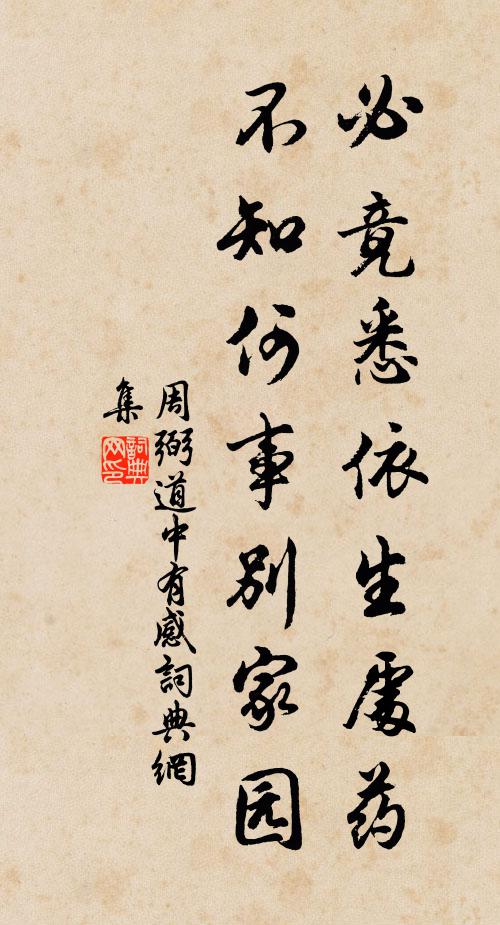 必竟悉依生處药
不知何事别家园
周弼道中有感詞典網
集
詞典网印